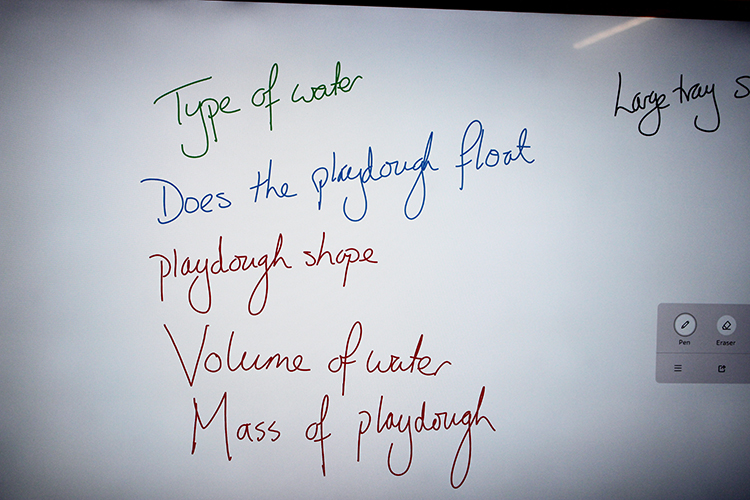 Type of water
Large tray s
Does the playdough float
playdough shape
Volume of water
Mass of playdough
Pen Eraser